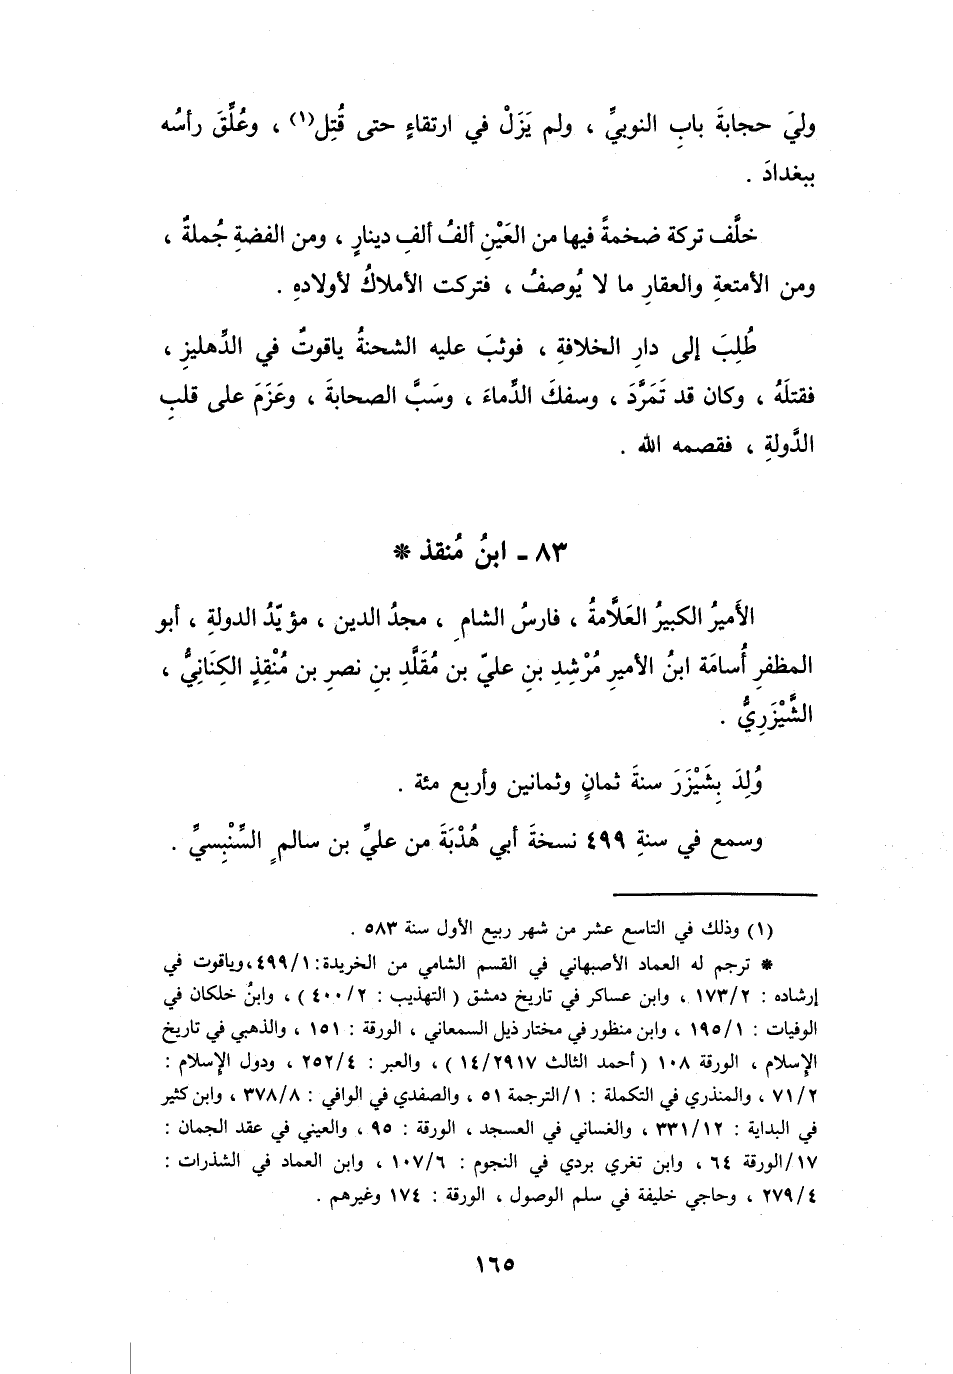 وليَ حجابةَ بابِ النوبيِّ ، ولم يَزَلْ في ارتقاءٍ حتى قُتِل(١) ، وعُلِّقَ رأسُه
ببغدادَ .
خلَّف تركة ضخمةً فيها من العَيْنِ ألفُ ألفِ دينارٍ ، ومن الفضةِ جُملةٌ ،
ومن الأمتعةِ والعقارِ ما لا يُوصفُ ، فتركت الأملاكُ لأولادهِ .
طُلِبَ إلى دارِ الخلافةِ ، فوثبَ عليه الشحنةُ ياقوتٌ في الدِّهليزِ ،
فقتلَهُ ، وكان قد تَمَرَّدَ ، وسفكَ الدِّماءَ ، وسَبَّ الصحابةَ ، وعَزَمَ على قلبِ
الدَّولةِ ، فقصمه الله .
٨٣ - ابنُ مُنقذ *
الأَميرُ الكبيرُ العَلَّامةُ ، فارسُ الشامِ ، مجدُ الدين ، مؤيّدُ الدولةِ ، أبو
المظفرِ أُسامَة ابنُ الأميرِ مُرْشِدِ بنِ عليّ بن مُقَلَّدِ بنِ نصرِ بن مُنْقِذٍ الكِنَانِيُّ ،
الشَّيْزَرِيُّ .
وُلِدَ بِشَيْزَرَ سنةَ ثمانٍ وثمانين وأربع مئة .
وسمع في سنةِ ٤٩٩ نسخةَ أبي هُدْبَةَ من عليِّ بن سالمٍ السِّنْبِسيِّ .
(١) وذلك في التاسع عشر من شهر ربيع الأول سنة ٥٨٣ .
* ترجم له العماد الأصبهاني في القسم الشامي من الخريدة: ٤٩٩/١ ، وياقوت في
إرشاده : ١٧٣/٢ ، وابن عساكر في تاريخ دمشق ( التهذيب : ٤٠٠/٢ ) ، وابنُ خلكان في
الوفيات : ١٩٥/١ ، وابن منظور في مختار ذيل السمعاني ، الورقة : ١٥١ ، والذهبي في تاريخ
الإسلام ، الورقة ١٠٨ ( أحمد الثالث ١٤/٢٩١٧ ) ، والعبر : ٢٥٢/٤ ، ودول الإسلام :
٧١/٢ ، والمنذري في التكملة : ١/الترجمة ٥١ ، والصفدي في الوافي : ٣٧٨/٨ ، وابن كثير
في البداية : ٣٣١/١٢ ، والغساني في العسجد ، الورقة : ٩٥ ، والعيني في عقد الجمان :
١٧/الورقة ٦٤ ، وابن تغري بردي في النجوم : ١٠٧/٦ ، وابن العماد في الشذرات :
٢٧٩/٤ ، وحاجي خليفة في سلم الوصول ، الورقة : ١٧٤ وغيرهم .
١٦٥